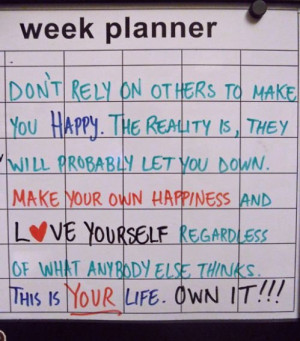 week planner
DON'T RELY ON OTHERS TO MAKE
YOU HAPPY. THE REALITY IS, THEY
WILL PROBABLY LET YOU DOWN.
MAKE YOUR OWN HAPPINESS AND
L♥VE YOURSELF REGARDLESS
OF WHAT ANYBODY ELSE THINKS.
THIS IS YOUR LIFE. OWN IT!!!